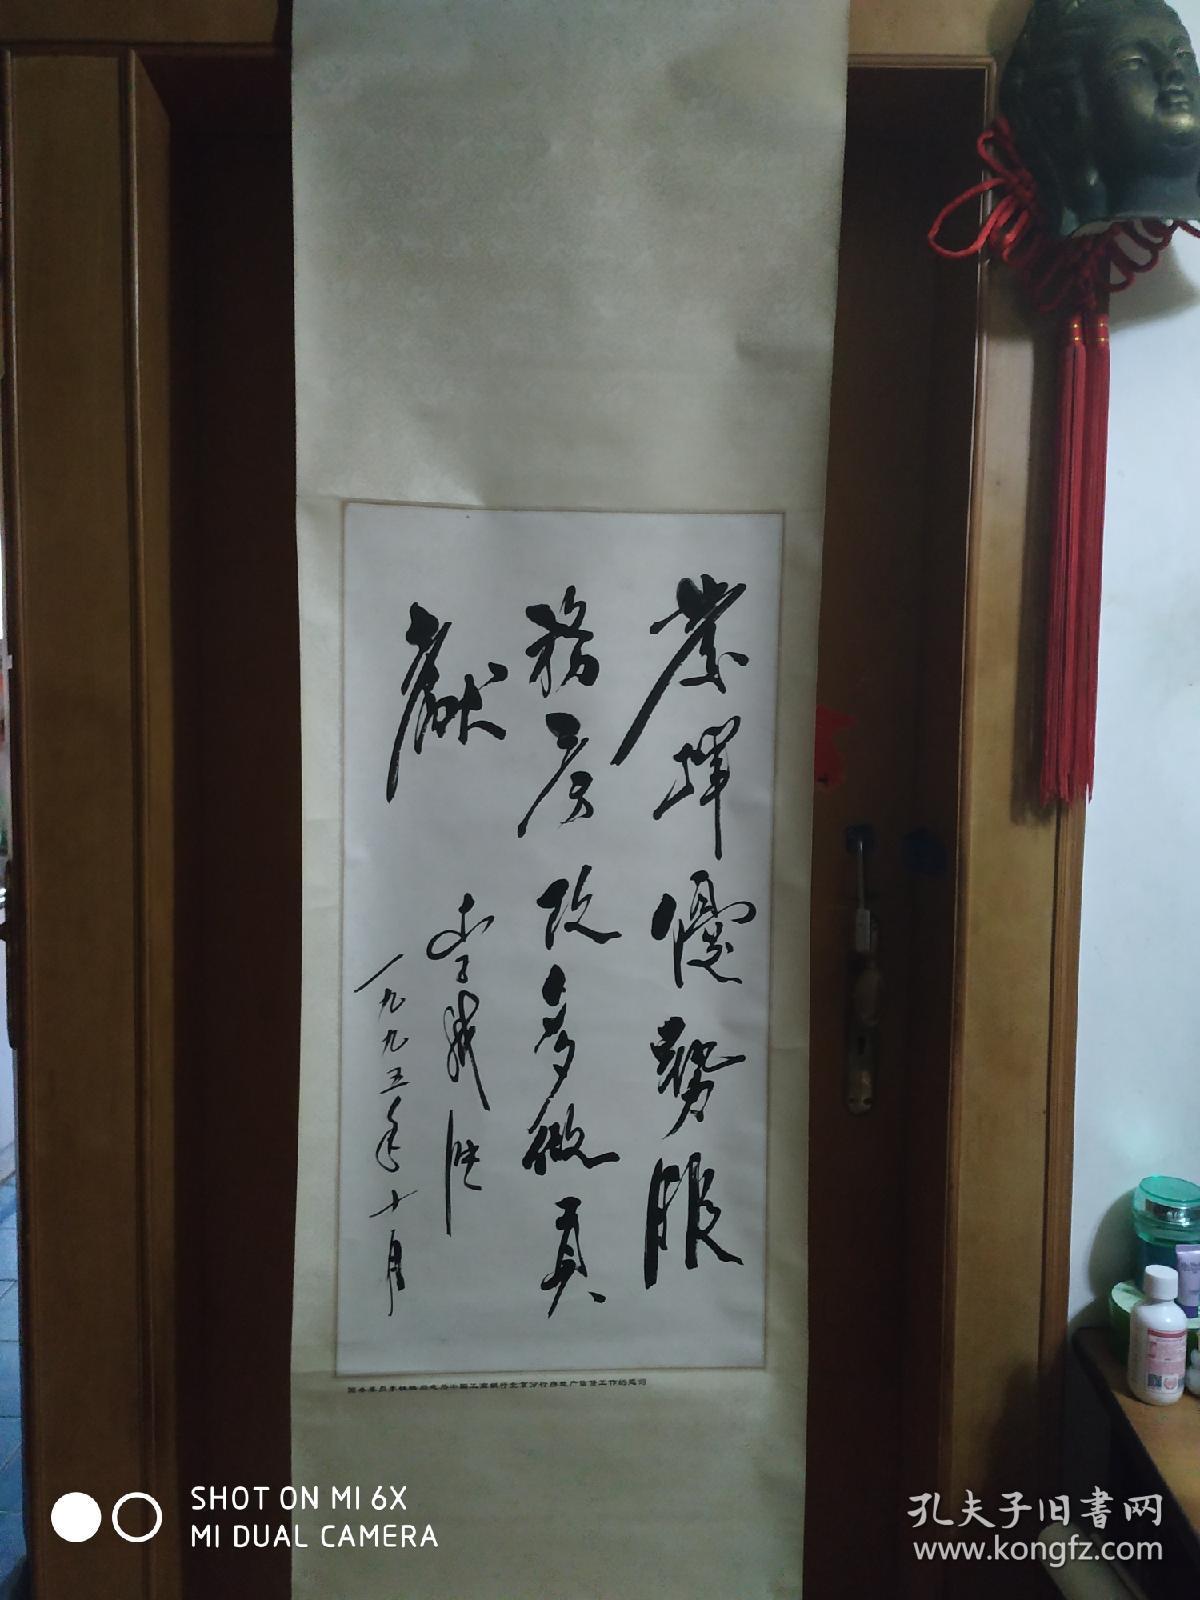 發揮優勢服
務房改多做貢
獻
李铁映
一九九五年十月
国务委员李铁映同志为中国工商银行北京分行房地产信贷工作的题词
SHOT ON MI 6X
MI DUAL CAMERA
孔夫子旧書网
www.kongfz.com